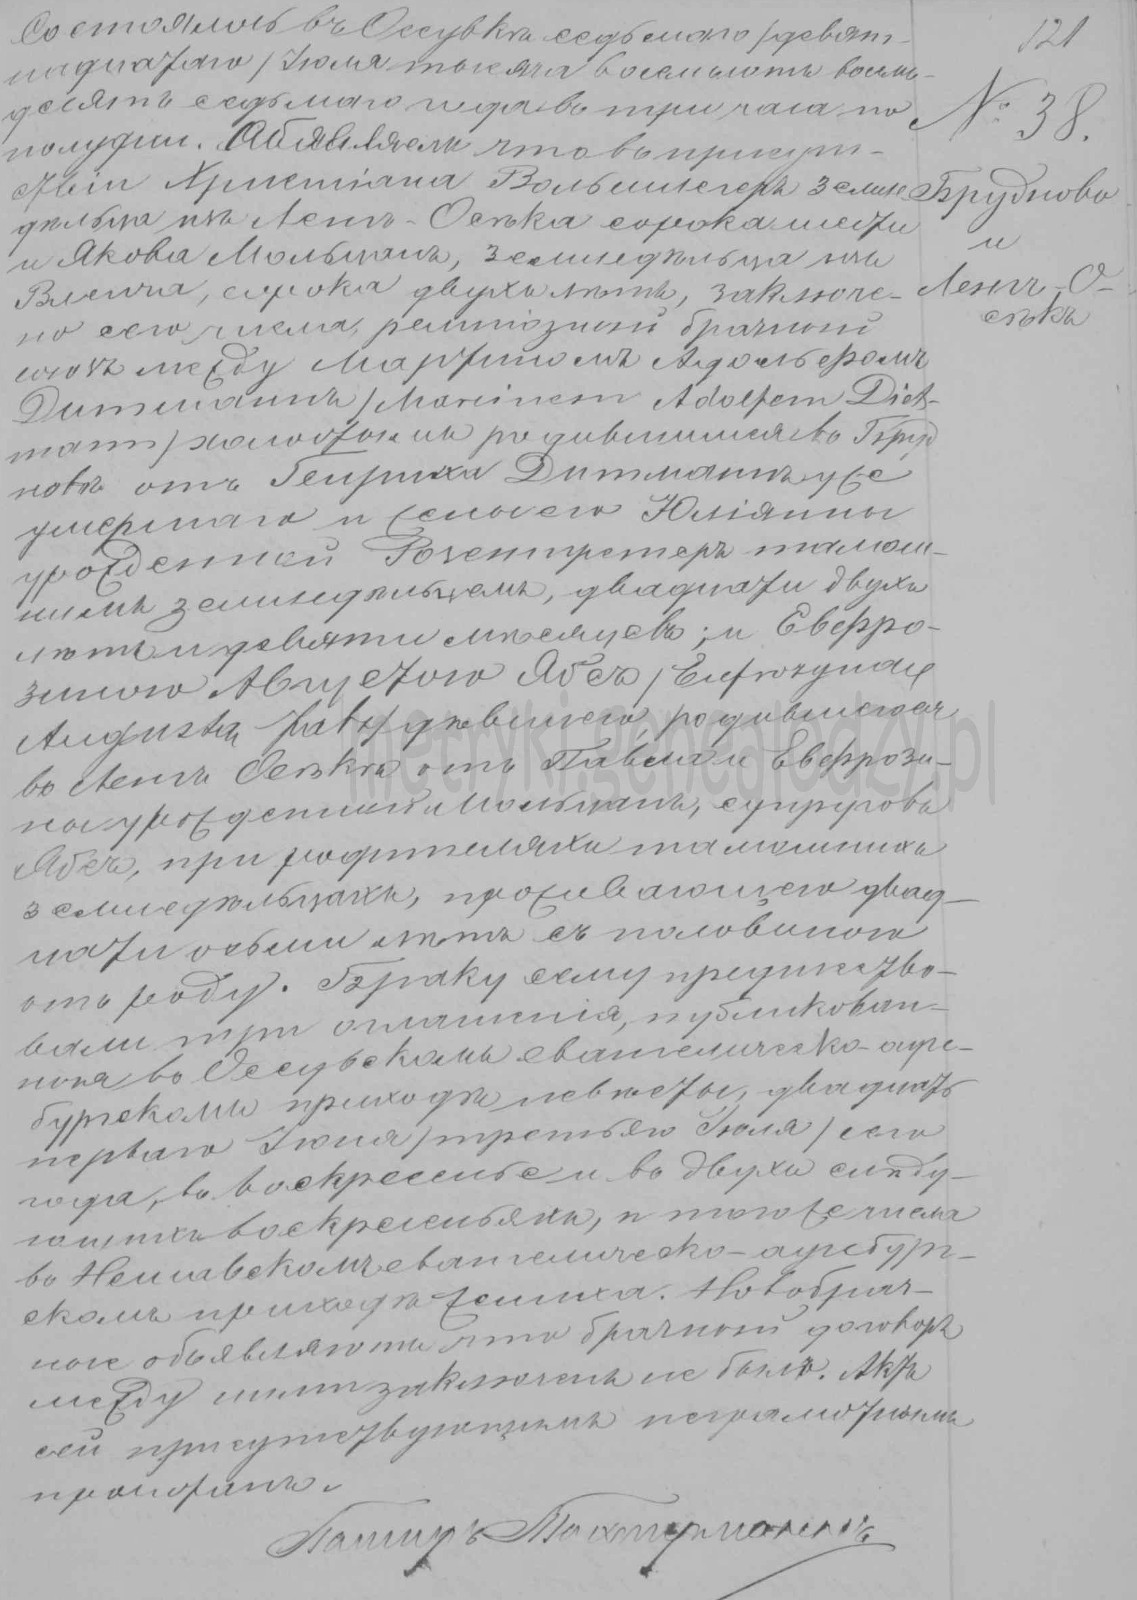 121
№ 38.
Брудново
и
Ленг-О-
сѣкъ
Состоялось въ Оссувкѣ седьмаго /девят-
надцатаго/ Іюля тысяча восемьсотъ восемь-
десятъ седьмаго года въ три часа по
полудни. Объявляемъ что въ присут-
ствіи Христіана Вольшлегеръ земле-
дѣльца изъ Ленгъ-Осѣка сорока шести
и Якова Мольцанъ, земледѣльца изъ
сорока двухъ лѣтъ, заключе-
но сего числа, религіозный брачный
союзъ между Мартиномъ Адольфомъ
Дитманнъ /Marcinem Adolfem Diet-
mann/ холостымъ родившимся въ Бруд
новѣ отъ Генриха Дитманнъ уже
умершаго и жены его Юліянны
урожденной Розентретеръ тамош-
нимъ земледѣльцемъ, двадцати двухъ
лѣтъ и девяти мѣсяцевъ; и Евфро-
зиною Августою Ябсъ /Eufrozyną
Augustą Jabs/ дѣвицею, родившеюся
въ Ленгъ Осѣкѣ отъ Павла и Евфрози-
ны урожденной Мольцанъ, супруговъ
Ябсъ, при родителяхъ тамошнихъ
земледѣльцахъ, проживающею двад-
цати осьми лѣтъ съ половиною
отъ роду. Браку сему предшество-
вали три оглашенія, публикован-
ныя въ Оссувскомъ евангелическо-аугс-
бургскомъ приходѣ невѣсты, двадцать
перваго Іюня /третьяго Іюля/ сего
года, въ воскресенье и въ двухъ слѣду-
ющихъ воскресеньяхъ, и тогоже числа
въ евангелическо-аугсбург-
скомъ приходѣ жениха. Новобрач-
ные объявляютъ что брачный договоръ
между ними заключенъ не былъ. Актъ
сей присутствующимъ неграмотнымъ
прочитанъ.
Пасторъ
metryki.genealodzy.pl